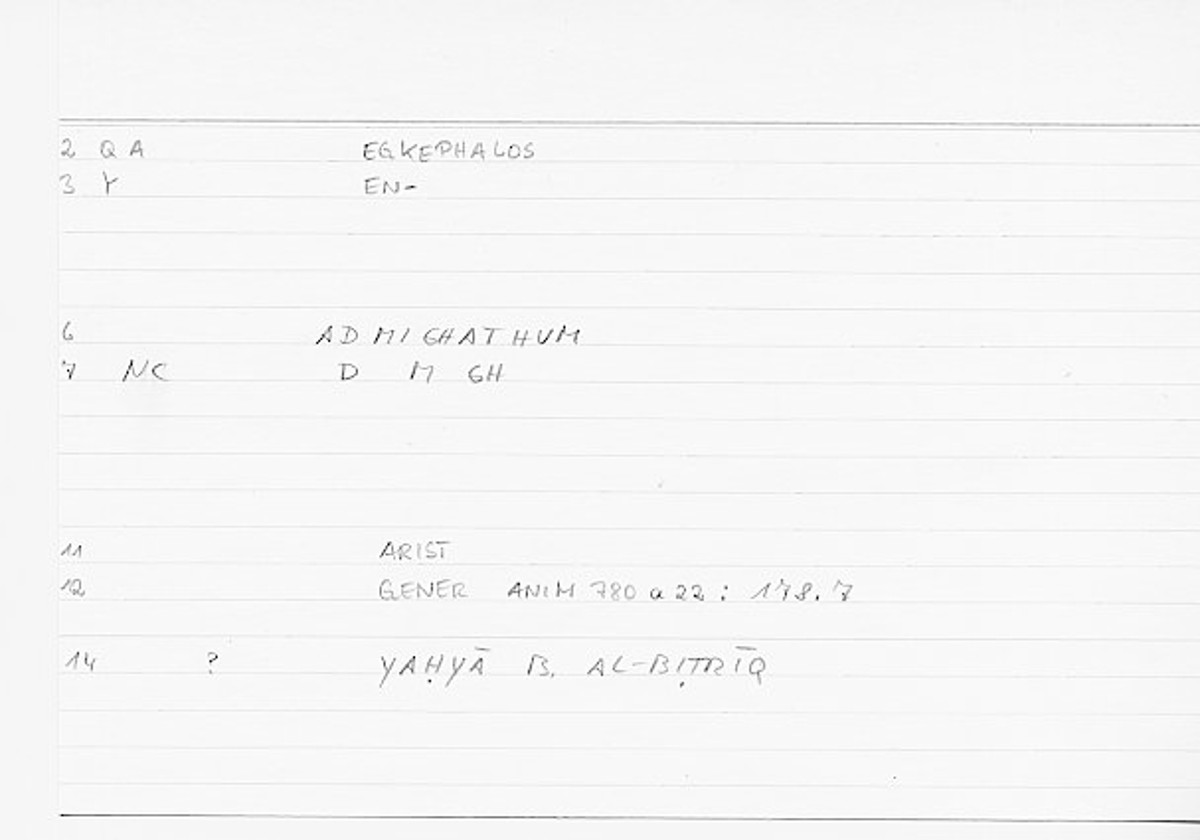 2 Q A EGKEPHALOS
3 Y EN-
6 ADMIGHATHUM
7 NC D M GH
11 ARIST
12 GENER ANIM 780 a 22 : 178.7
14 ? YAḤYĀ B. AL-BIṬRĪQ